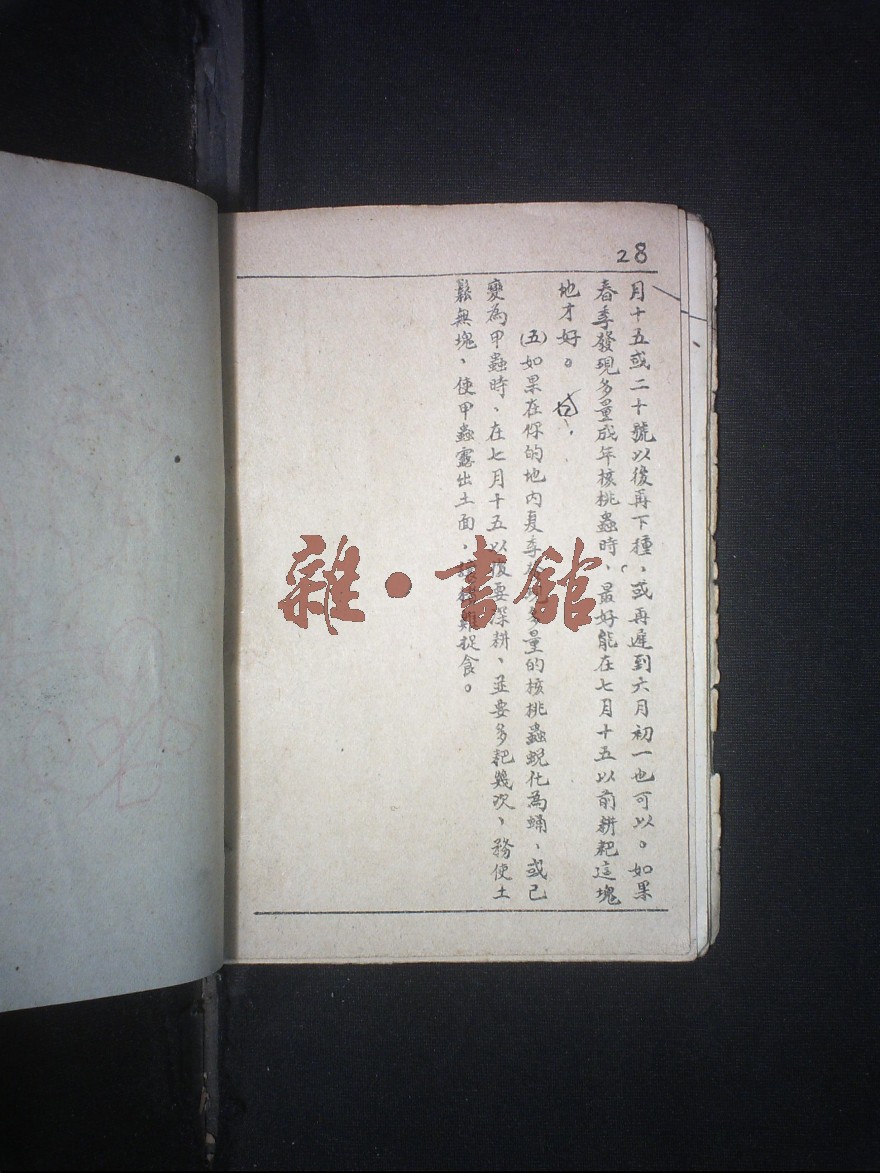 28
月十五或二十號以後再下種，或再遲到六月初一也可以。如果
春季發現多量成年核桃蟲時、最好能在七月十五以前耕耙這塊
地才好。
(五)如果在你的地内夏季多量的核桃蟲蜕化為蛹、或已
變為甲蟲時、在七月十五以後要深耕、並要多耙幾次，務使土
鬆無塊，使甲蟲露出土面，捉食。
雜·書館